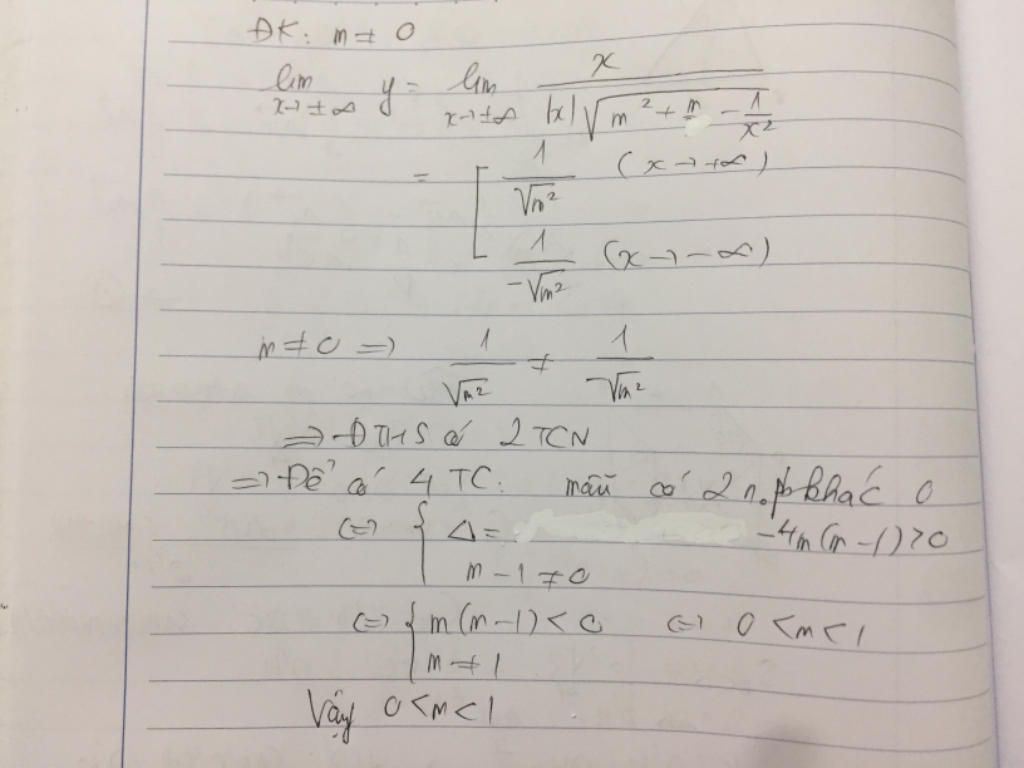 ĐK: m ≠ 0
lim x→±∞ y = lim x→±∞ x / (|x|√(m² + m - 1/x²))
= [ 1/√m² (x→+∞)
1/-√m² (x→-∞)
m ≠ 0 => 1/√m² ≠ 1/-√m²
=> ĐTHS có 2 TCN
=> Để có 4 TC: mẫu có 2 n.pb khác 0
<=> { Δ = -4m(m-1)>0
m - 1 ≠ 0
<=> { m(m-1) < 0 <=> 0 < m < 1
m ≠ 1
Vậy 0 < m < 1